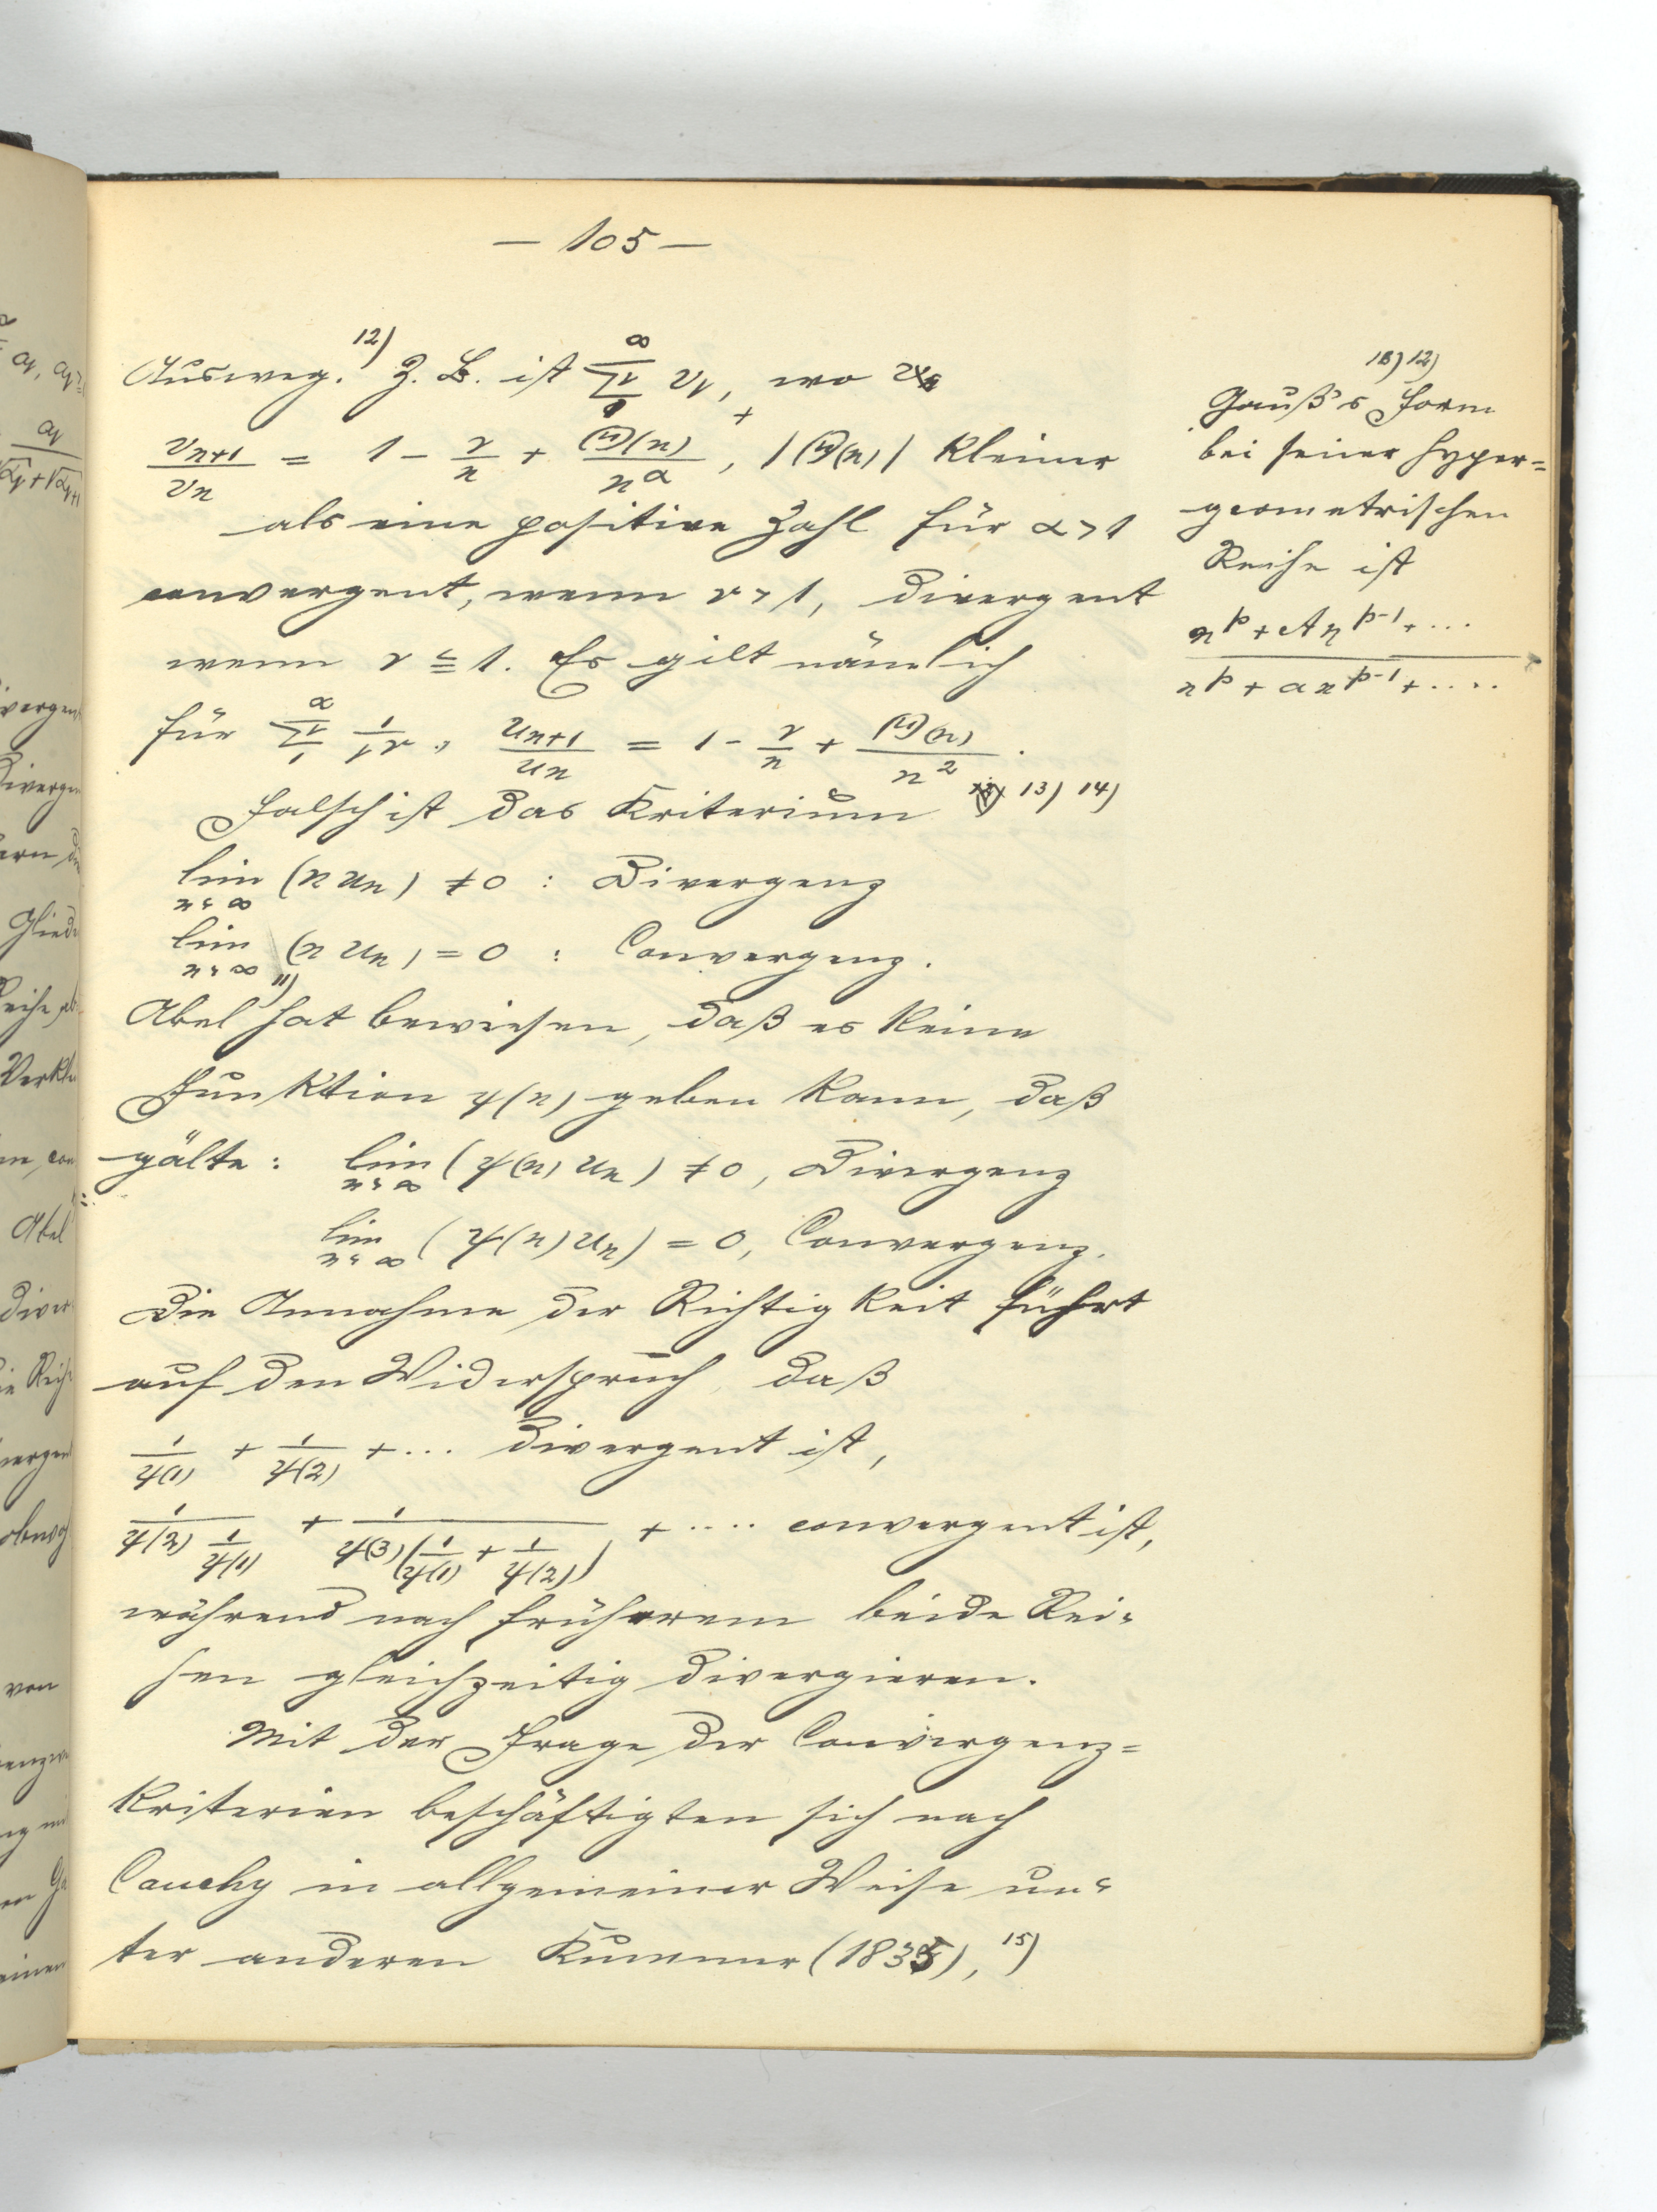 — 105 —
Ausweg. 12) Z. B. ist ∞∑1 vν, wo
vn+1/vn = 1 - r/n + Θ(n)/n^α, |Θ(n)| kleiner
als eine positive Zahl für α > 1
convergent, wenn r > 1, divergent
wenn r ≦ 1. Es gilt nämlich
für ∞∑1 1/ν^r, un+1/un = 1 - r/n + Θ(n)/n^2.
Falsch ist das Kriterium 13) 14)
lim n=∞ (n un) ≠ 0 : Divergenz
lim n=∞ (n un) = 0 : Convergenz.
Abel 11) hat bewiesen, daß es keine
Funktion ψ(n) geben kann, daß
gälte: lim n=∞ (ψ(n) un) ≠ 0, Divergenz
lim n=∞ (ψ(n) un) = 0, Convergenz.
Die Annahme der Richtigkeit führt
auf den Widerspruch, daß
1/ψ(1) + 1/ψ(2) + ... divergent ist,
1/(ψ(2) 1/ψ(1)) + 1/(ψ(3)(1/ψ(1) + 1/ψ(2))) + .... convergent ist,
während nach früherem beide Rei-
hen gleichzeitig divergieren.
Mit der Frage der Convergenz=
kriterien beschäftigten sich nach
Cauchy in allgemeiner Weise un-
ter anderen Kummer (1835), 15)
12)
Gauß's Form
bei seiner hyper=
geometrischen
Reihe ist
n^p + An^p-1 + ...
n^p + an^p-1 + ....